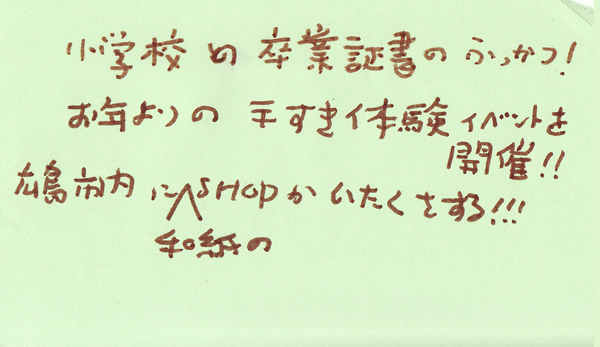 小学校の卒業証書のふっかつ!
お年よりの手すき体験イベントを
開催!!
広島市内に和紙のSHOPかいたくをする!!!